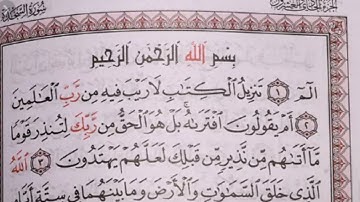 سُورَةُ السَّجْدَةِ
بِسْمِ اللَّهِ الرَّحْمَٰنِ الرَّحِيمِ
الٓمٓ ١ تَنزِيلُ الْكِتَٰبِ لَا رَيْبَ فِيهِ مِن رَّبِّ الْعَٰلَمِينَ
٢ أَمْ يَقُولُونَ افْتَرَىٰهُ ۚ بَلْ هُوَ الْحَقُّ مِن رَّبِّكَ لِتُنذِرَ قَوْمًا
مَّآ أَتَىٰهُم مِّن نَّذِيرٍ مِّن قَبْلِكَ لَعَلَّهُمْ يَهْتَدُونَ ٣ اللَّهُ
الَّذِى خَلَقَ السَّمَٰوَٰتِ وَالْأَرْضَ وَمَا بَيْنَهُمَا فِى سِتَّةِ أَيَّامٍ